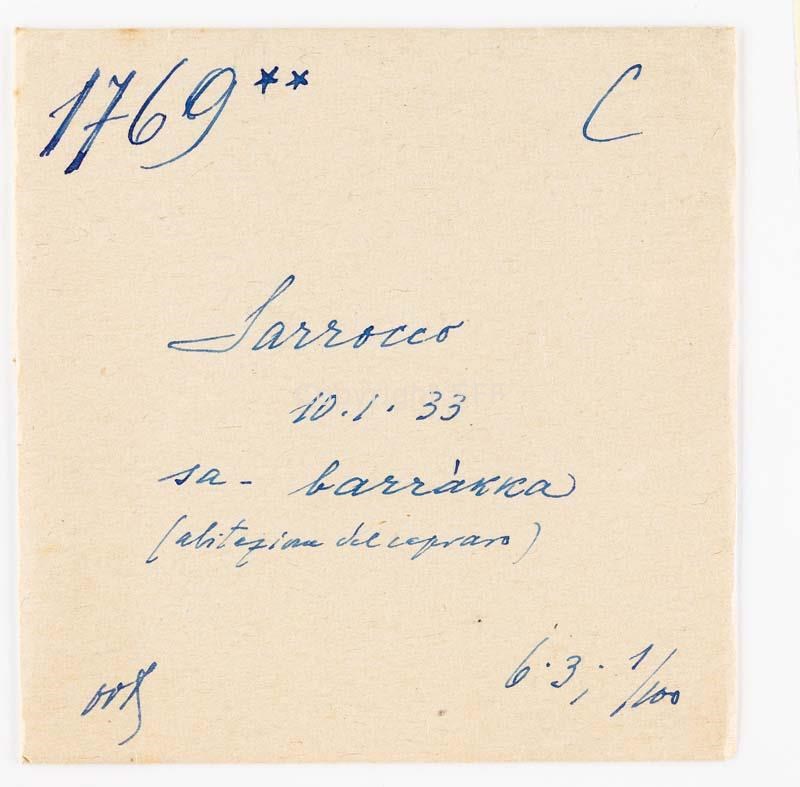 1769** C
Sarrocco
10.1.33
sa- barràkka
(abitazione del capraro)
6.3; 1/100